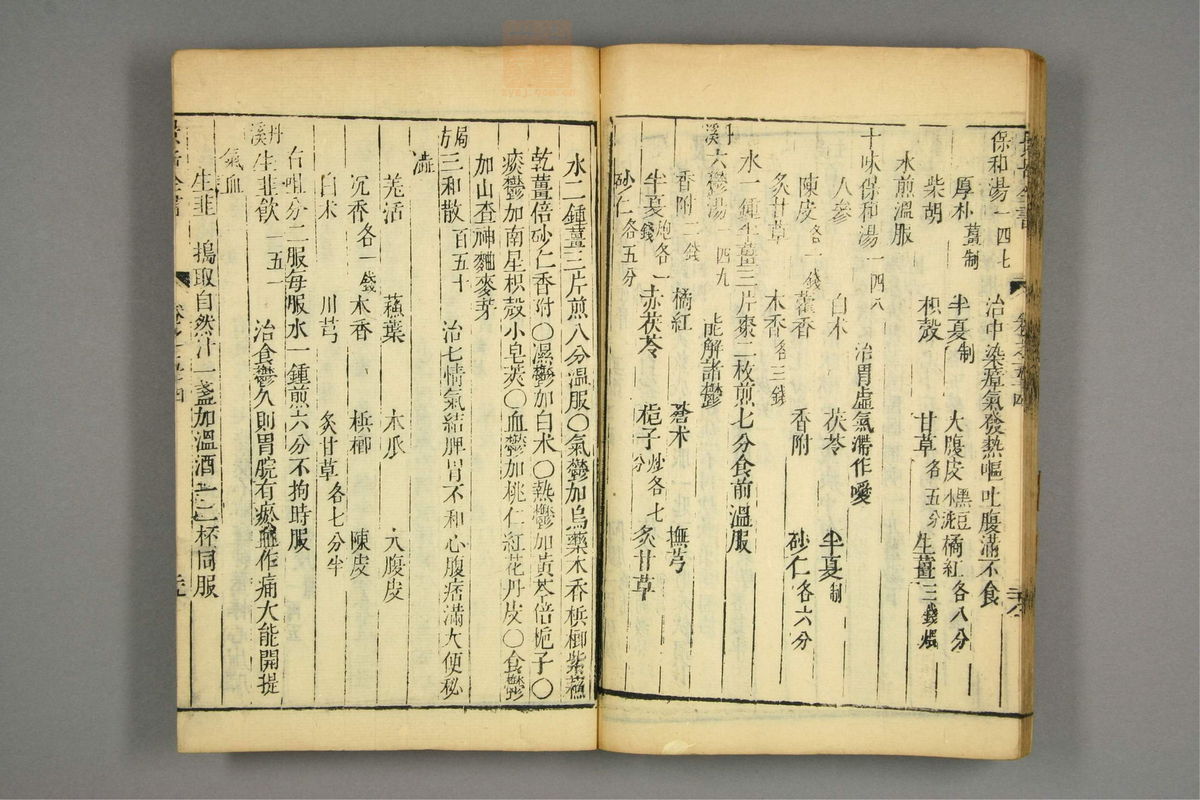 保和湯一四七 治中染瘴氣發熱嘔吐腹滿不食
厚朴薑制 半夏制 大腹皮黑豆水洗 橘紅各八分
柴胡 枳殼 甘草各五分 生薑三錢煨
水煎溫服
十味保和湯一四八 治胃虛氣滯作噯
人參 白朮 茯苓 半夏制
陳皮各一錢 藿香 香附 砂仁各六分
炙甘草 木香各三錢
水一鍾生薑三片棗二枚煎七分食前溫服
丹溪六鬱湯一四九 能解諸鬱
香附二錢 橘紅 蒼朮 撫芎
半夏炮各一錢 赤茯苓 梔子炒各七分 炙甘草
砂仁各五分
水二鍾薑三片煎八分溫服〇氣鬱加烏藥木香梹榔紫蘇
乾薑倍砂仁香附〇濕鬱加白朮〇熱鬱加黃芩倍梔子〇
痰鬱加南星枳殼小皂莢〇血鬱加桃仁紅花丹皮〇食鬱
加山查神麯麥芽
局方三和散百五十 治七情氣結脾胃不和心腹痞滿大便秘
澁
羌活 蘇葉 木瓜 大腹皮
沉香各一錢 木香 梹榔 陳皮
白朮 川芎 炙甘草各七分半
右㕮分二服每服水一鍾煎六分不拘時服
丹溪生韭飲一五一 治食鬱久則胃脘有瘀血作痛大能開提
氣血
生韭 搗取自然汁一盞加溫酒一二杯同服